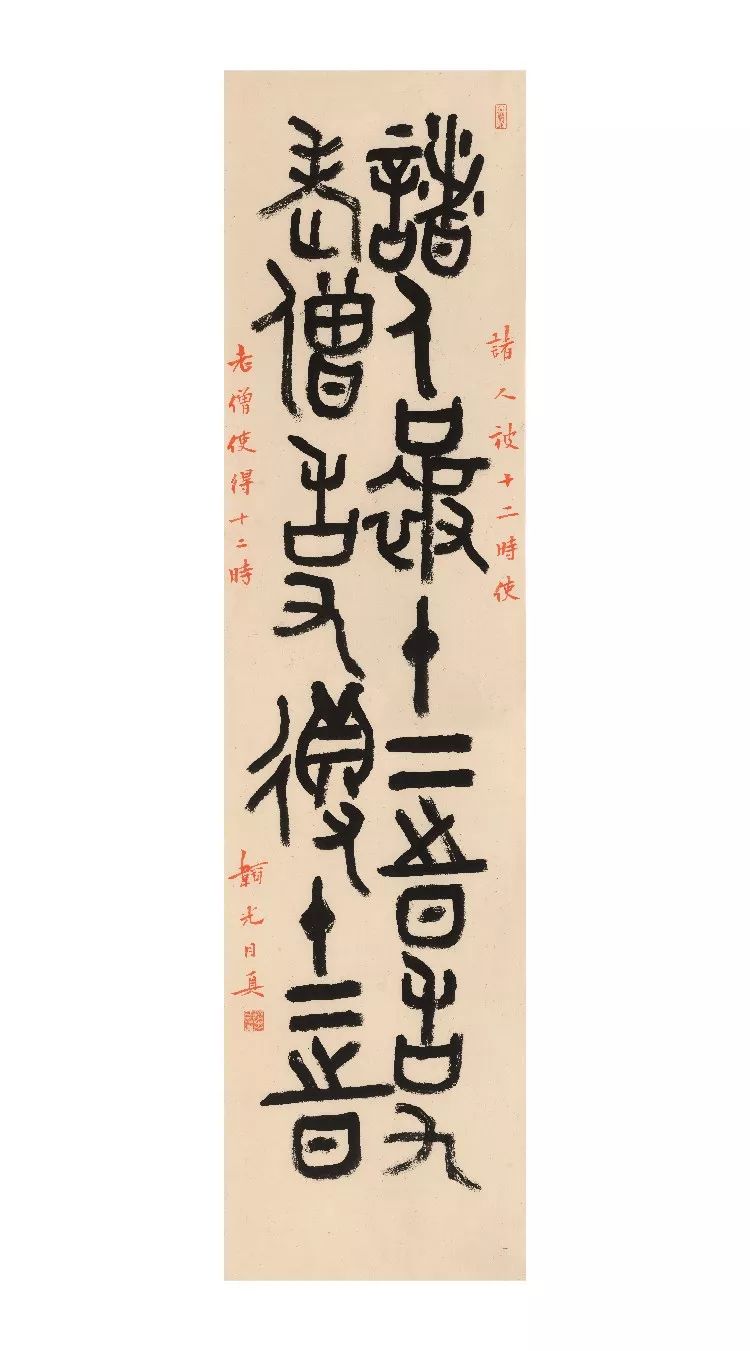 諸人被十二時使
諸人被十二時使
老僧使得十二時
老僧使得十二時
光日真